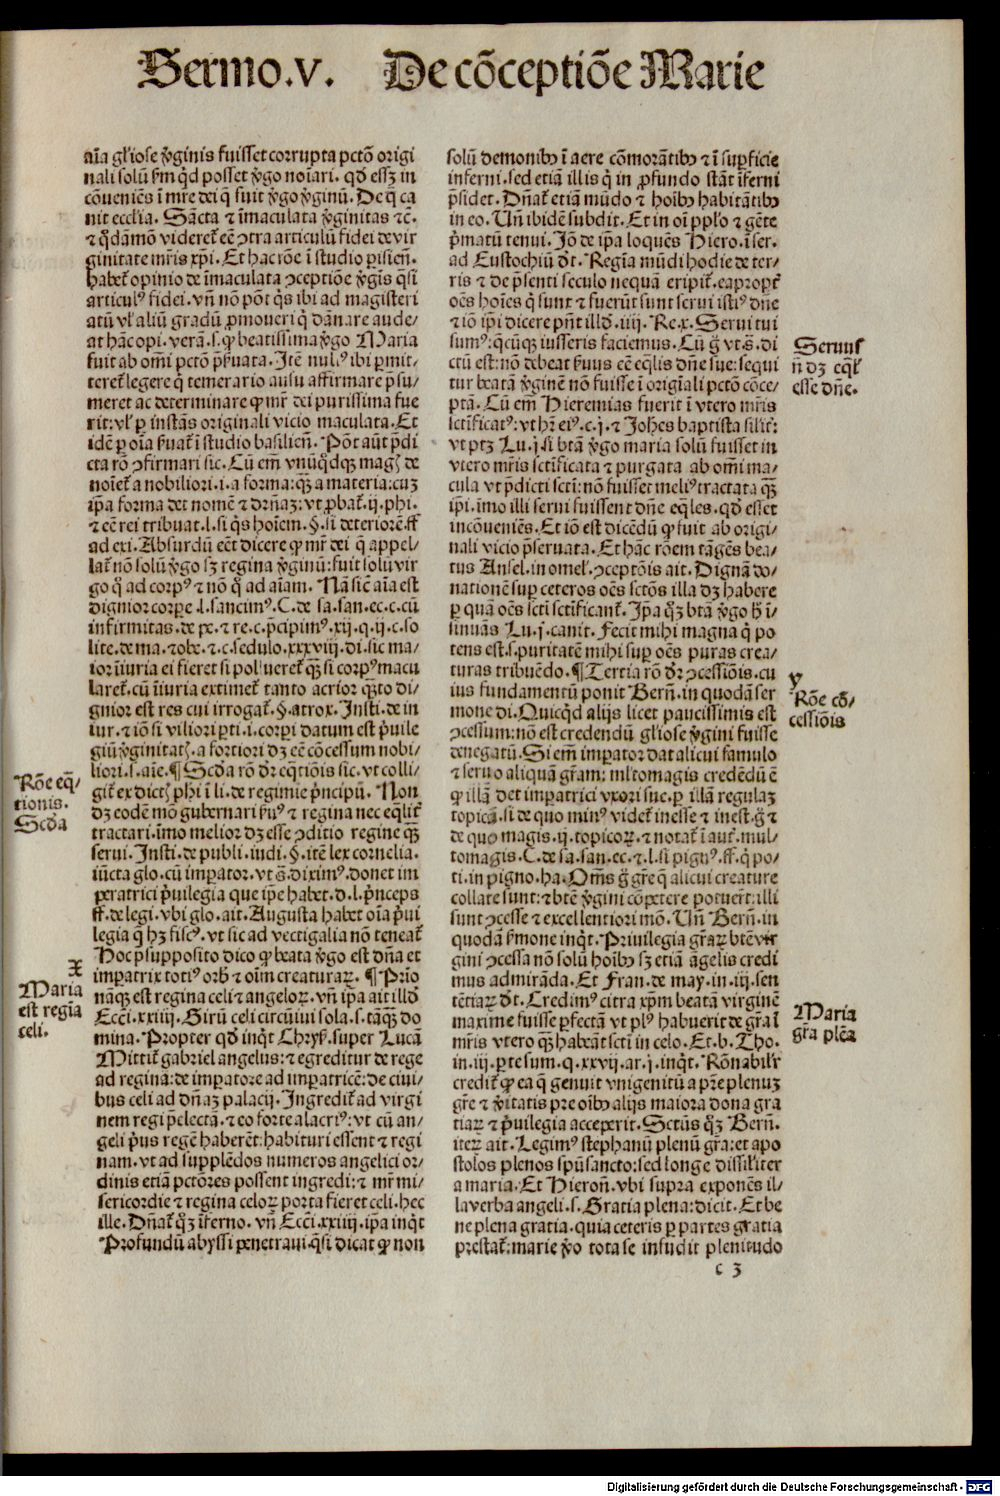 Sermo.v. De cõceptiõe Marie
aĩa gl'iose v̾ginis fuisset corrupta pctõ origi
nali solũ ẜm q̇d posset v̾go noĩari. qd̾ essꝫ in
cõueniẽs ĩ mr̃e dei q̃ fuit v̾go v̾ginũ. De q̃ ca
nit ecclia. Sãcta ⁊ ĩmaculata v̾ginitas ⁊c̃.
⁊ q̇dãmõ videret̃ eẽ ꝯtra articulũ fidei de vir
ginitate mr̃is xp̃i. Et hac rõne ĩ studio p̱isieñ.
habet̃ opinio de ĩmaculata ꝯceptiõe v̾gis q̃si
articulꝰ fidei. vñ nõ põt q̇s ibi ad magisteri
atũ vl' aliũ gradũ ꝓmoueri q̇ dãnare aude/
at hãc opi. verã. s. ꝙ beatissima v̾go Maria
fuit ab om̃i pctõ p̃ẜuata. Itẽ nulꝰ ibi ꝑmit/
teret̃ legere q̇ temerario ausu affirmare p̃su/
meret ac determinare ꝙ mr̃ dei purissima fue
rit: vl' ꝑ instãs originali vicio maculata. Et
idẽ ꝑ oĩa ẜuat̃ ĩ studio basilieñ. Põt aũt p̃di
cta rõ ꝯfirmari sic. Cũ em̃ vnũq̇dqꝫ mag̃ de
noĩet̃ a nobiliori. i. a forma: qꝫ̃ a materia: cuꝫ
ip̃a forma det nomẽ ⁊ dr̃ñaꝫ: vt ꝓbat̃. ij. phi.
⁊ eẽ rei tribuat. l. si q̇s hoĩem. §. si deteriorẽ. ff
ad exi. Absurdũ eẽt dicere ꝙ mr̃ dei q̃ appel/
lat̃ nõ solũ v̾go sꝫ regina v̾ginũ: fuit solũ vir
go q̃ ad corpꝰ ⁊ nõ q̃ ad aĩam. Nã sic̃ aĩa est
dignior corꝑe. l. sancimꝰ. C. de sa. san. ec. c. cũ
infirmitas. de pe. ⁊ re. c. p̃cipimꝰ. xij. q. ij. c. so
lite. de ma. ⁊ obe. ⁊ c. sedulo. xxxviij. di. sic ma/
ior ĩiuria ei fieret si polueret̃ qꝫ̃ si corpꝰ macu
laret̃. cũ ĩiuria extimet̃ tanto acrior qꝫ̃to di/
gnior est res cui irrogat̃. §. atrox. Insti. de in
iur. ⁊ iõ si viliori ꝑti. i. corpi datum est p̃uile
giũ v̾ginitatꝭ. a fortiori dꝫ eẽ cõcessum nobi/
liori. s. aĩe. ¶ Scd̾a rõ dr̃ eq̃tiõis sic. vt colli/
git̃ ex dictꝭ phi ĩ li. de regimie p̃ncipũ. Non
dꝫ eodẽ mõ gubernari ẜuꝰ ⁊ regina nec eq̃lit̃
tractari. ĩmo melior dꝫ esse ꝯditio regine qꝫ̃
serui. Insti. de publi. iudi. §. itẽ lex cornelia.
iũcta glo. cũ imꝑator. vt s̃. diximꝰ. donet im
ꝑatrici p̃uilegia que ip̃e habet. d. l. p̃nceps
ff. de legi. vbi glo. ait. Augusta habet oĩa p̃ui
legia q̃ hꝫ fiscꝰ. vt sic ad vectigalia nõ teneat̃
Hoc p̃supposito dico ꝙ beata v̾go est dñ̃a et
imꝑatrix totiꝰ orbꝭ ⁊ oĩm creaturaꝝ. ¶ Prĩo
nãqꝫ est regina celi ⁊ angeloꝝ. vñ ip̃a ait illd̾
Ecci. xxiiij. Girũ celi circũiui sola. s. tãqꝫ̃ do
mina. Propter qd̾ inqt̃ Chrys̃. super Lucã
Mittit̃ gabriel angelus: ⁊ egreditur de rege
ad regina: de imꝑatore ad imꝑatricẽ: de ciui/
bus celi ad dñ̃aꝫ palacij. Ingredit̃ ad virgi
nem regi p̃electã. ⁊ eo forte alacriꝰ: vt cũ an/
geli p̃us regẽ haberẽt: habituri essent ⁊ regi
nam. vt ad supplẽdos numeros angelici or/
dinis etiã pctõres possent ingredi: ⁊ mr̃ mi/
sericordie ⁊ regina celoꝝ porta fieret celi. hec
ille. Dñ̃at̃ qꝫ̃ ĩferno. vñ Ecci. xxiiij. ip̃a inqt̃
Profundũ abyssi penetraui. q̃si dicat ꝙ non
Rõe eq̃/
tionis.
Scd̾a
x
Maria
est regĩa
celi.
solũ demonibꝰ ĩ aere cõmorãtibꝰ ⁊ ĩ suꝑficie
inferni. sed etiã illis q̇ in ꝓfundo stãt ĩferni
p̃sidet. Dñ̃at̃ etiã mũdo ⁊ hoĩbꝰ habitãtibꝰ
in eo. Uñ ibidẽ subdit. Et in oĩ pplo ⁊ gẽte
p̃matũ tenui. Iõ de ip̃a loquẽs Hiero. ĩ ser.
ad Eustochiũ dt̃. Regĩa mũdi hodie de ter/
ris ⁊ de p̃senti seculo nequã eripit̃. eapropt̃
oẽs hoĩes q̇ sunt ⁊ fuerũt sunt serui istiꝰ dñe
⁊ iõ ip̃i dicere pñt illd̾. iiij. Re. x. Serui tui
sumꝰ: q̃cũqꝫ iusseris faciemus. Cũ g̃ vt s̃. di
ctũ est: nõ debeat ẜuus eẽ eq̃lis dñe sue: sequi
tur beatã v̾ginẽ nõ fuisse ĩ origĩali pctõ cõce/
ptã. Cũ em̃ Hieremias fuerit ĩ vtero mr̃is
sctĩficatꝰ: vt hr̃ eiꝰ. c. j. ⁊ Johẽs baptista silit̃:
vt ptꝫ Lu. j. si btã v̾go maria solũ fuisset in
vtero mr̃is sctĩficata ⁊ purgata ab om̃i ma/
cula vt p̃dicti sctĩ: nõ fuisset meliꝰ tractata qꝫ̃
ip̃i. ĩmo illi serui fuissent dñe eq̃les. qd̾ esset
incõueniẽs. Et iõ est dicẽdũ ꝙ fuit ab origi/
nali vicio p̃seruata. Et hãc rõem tãgẽs bea/
tus Ansel. in omel'. ꝯceptõis ait. Dignã do/
nationẽ suꝑ ceteros oẽs sctõs illa dꝫ habere
ꝑ quã oẽs sctĩ sctĩficant̃. Ip̃a qꝫ̃ btã v̾go h̾ ĩ/
sinuãs Lu. j. canit. Fecit mihi magna q̇ po
tens est. s. puritatẽ mihi suꝑ oẽs puras crea/
turas tribuẽdo. ¶ Tertia rõ dr̃ ꝯcessiõis. cu
ius fundamentũ ponit Berñ. in quodã ser
mone di. Quicq̇d alijs licet paucissimis est
ꝯcessum: nõ est credendũ gl'iose v̾gini fuisse
denegatũ. Si em̃ imꝑator dat alicui famulo
⁊ seruo aliquã gr̃am: ml̃tomagis credẽdũ ẽ
ꝙ illã det imꝑatrici vxori sue. ꝑ illã regulaꝫ
topicã. si de quo minꝰ videt̃ inesse ⁊ inest. g̃ ⁊
de quo magis. ij. topicoꝝ. ⁊ notat̃ ĩ aut̃. mul/
tomagis. C. de sa. san. ec. ⁊ l. si pignꝰ. ff. q̇ po/
ti. in pigno. ha. Om̃s g̃ gr̃e q̃ alicui creature
collate sunt: ⁊ bt̃e v̾gini cõpetere potuert̃: illi
sunt ꝯcesse ⁊ excellentiori mõ. Uñ Berñ. in
quodã ẜmone inqt̃. Priuilegia gr̃aꝝ bt̃e vir
gini ꝯcessa nõ solũ hoĩbꝰ sꝫ etiã ãgelis credi
mus admirãda. Et Fran. de may. in. iij. sen
tẽtiaꝝ dt̃. Credimꝰ citra xp̃m beatã virginẽ
maxime fuisse ꝑfectã vt plꝰ habuerit de gr̃a ĩ
mr̃is vtero qꝫ̃ habeãt sctĩ in celo. Et. b. Tho.
in. iij. ꝑte sum. q. xxvij. ar. j. inqt̃. Rõnabilr̃
credit̃ ꝙ ea q̃ genuit vnigenitũ a pr̃e plenuꝫ
gr̃e ⁊ v̾itatis pre oĩbꝰ alijs maiora dona gra
tiaꝝ ⁊ p̃uilegia acceꝑit. Sctũs qꝫ̃ Berñ.
iteꝝ ait. Legimꝰ stephanũ plenũ gr̃a: et apo
stolos plenos spũsancto: sed longe dissilit̃er
a maria. Et Hieroñ. vbi supra exponẽs il/
la verba angeli. s. Gratia plena: dicit. Et be
ne plena gratia. quia ceteris ꝑ partes gratia
prestat̃: marie v̾o tota se infudit plenitudo
Seruuſ
ñ dꝫ eq̃l'
esse dñe.
y
Rõe cõ/
cessiõis
Maria
gr̃a plẽa
c 3
Digitalisierung gefördert durch die Deutsche Forschungsgemeinschaft - DFG